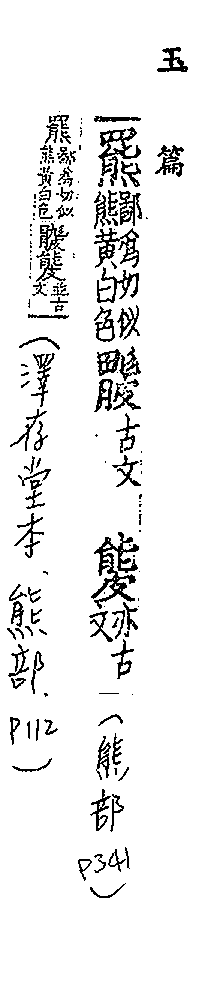 玉篇
羆鄙爲切似熊黃白色 古文 亦古文（熊部 P341）
羆鄙爲切似熊黃白色 並古文（澤存堂本、熊部、P112）